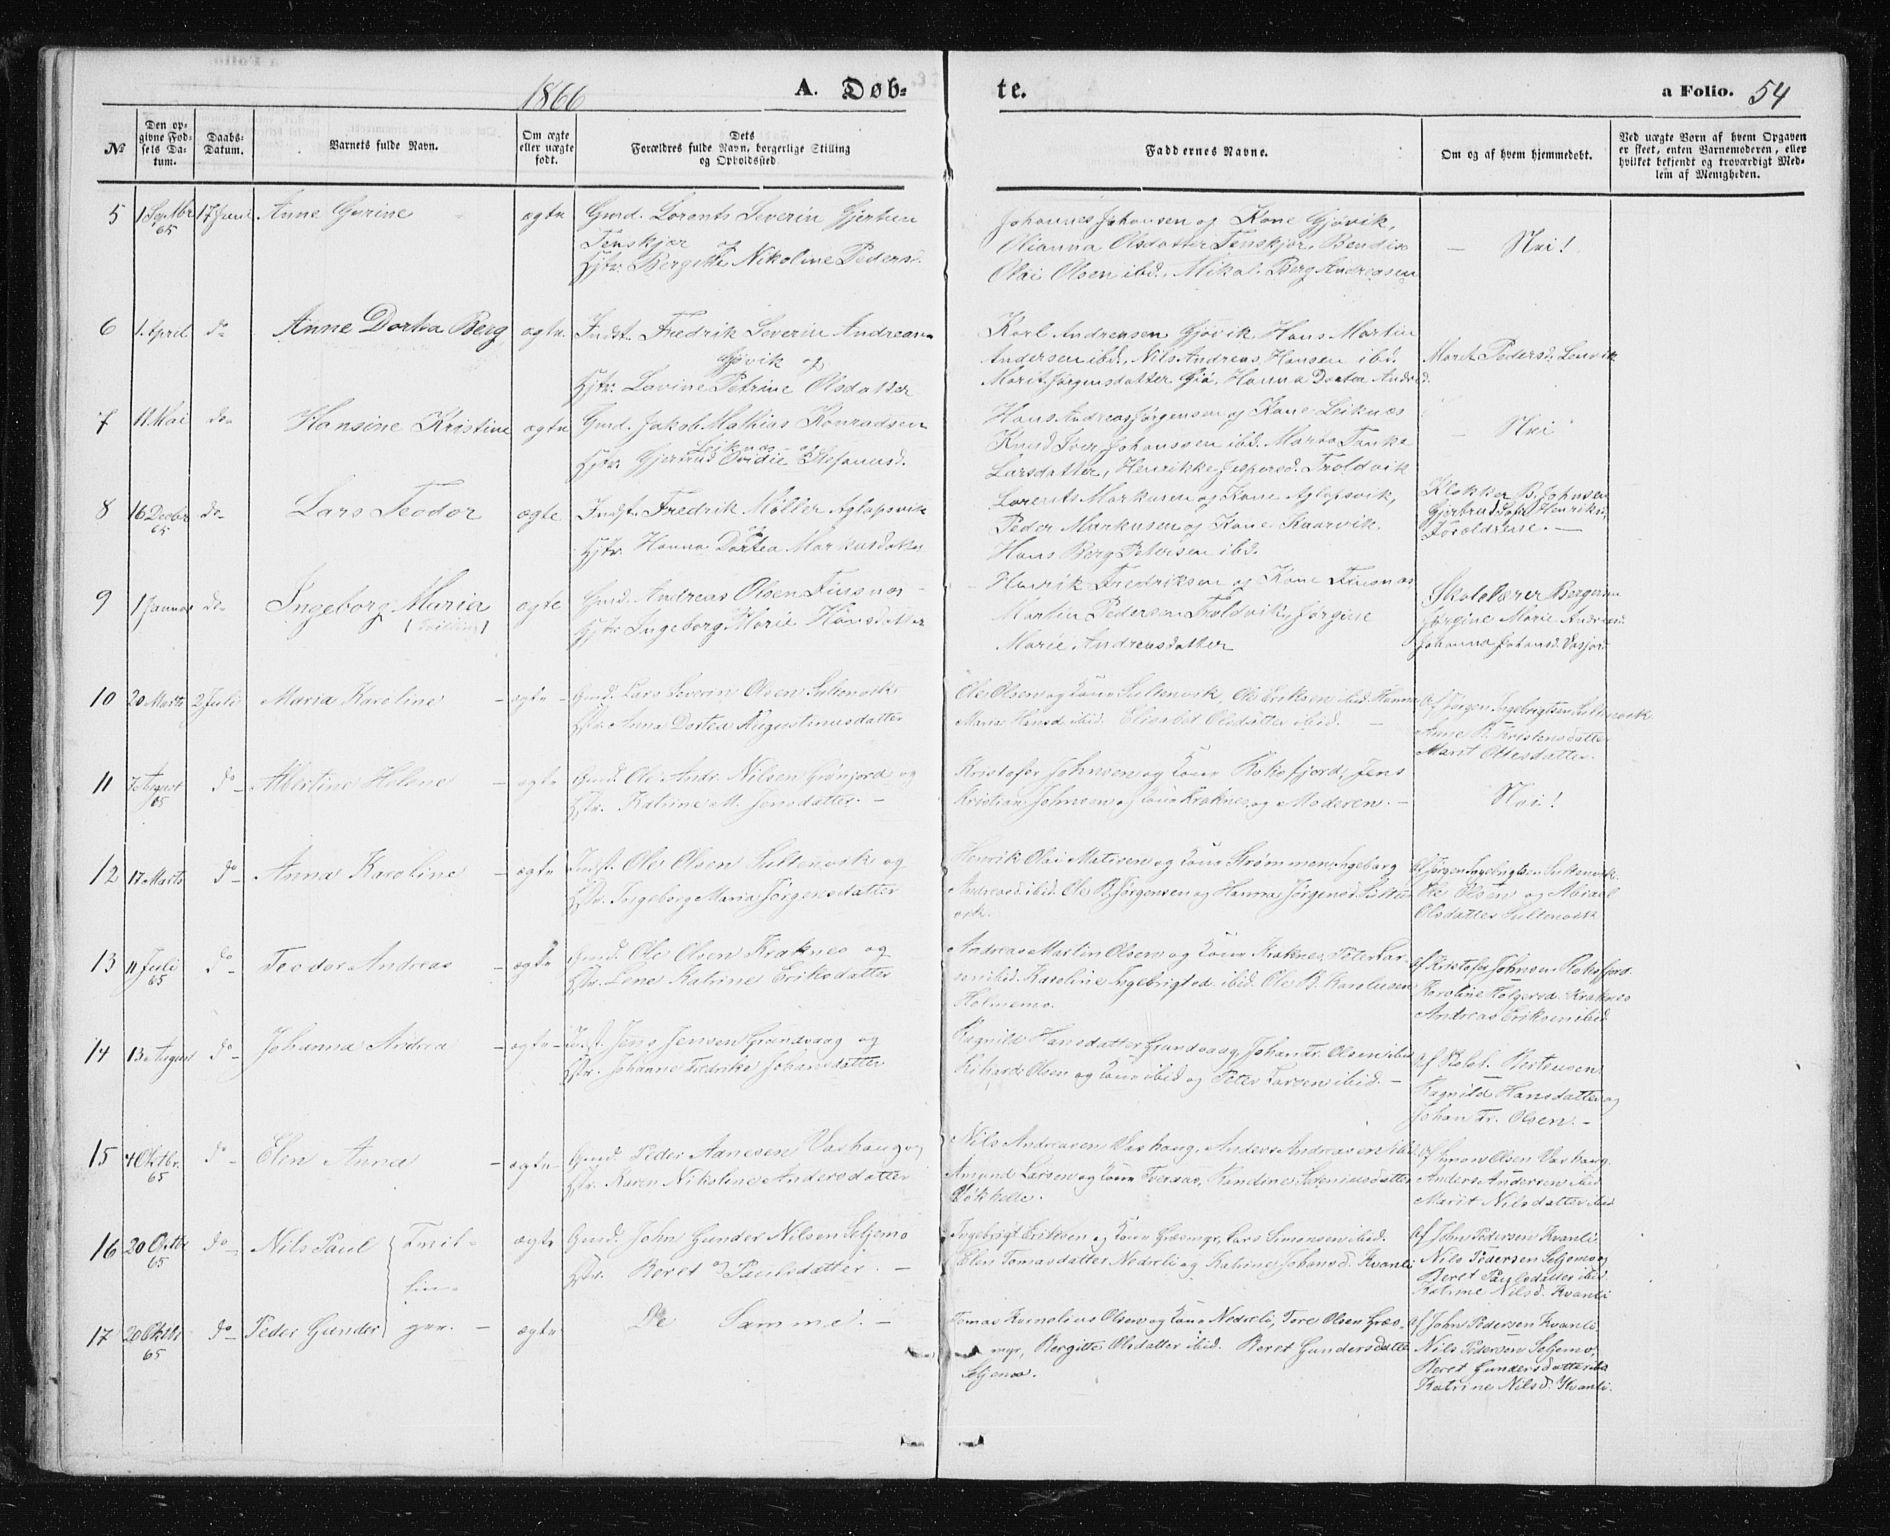 1866 A. Døb= te. a Folio. 54
№
Den op=
givne Fød=
sels Da=
tum.
Daabs=
Datum.
Barnets fulde Navn.
Om ægte
eller uægte
født.
Dets
Forældres fulde Navn, borgerlige Stilling
og Opholdssted.
Faddernes Navne.
Om og af hvem hjemmedøbt.
Ved uægte Børn af hvem Opgaven
er skeet, enten Barnemoderen, eller
hvilket bekjendt og troværdigt Med=
lem af Menigheden.
5 1 Septbr 65 17 Juni Anne Gurine ægte Gmd. Lorents Severin Gjertsen
Tenskjær og
Hstr. Bergitte Nikoline Pedersd.
Johannes Johansen og Kone Gjøvik,
Olianna Olsdatter Tenskjær, Bendix
Olai Olsen ibd. Mikal Berg Andreasen
— Nei!
6 1 April do Anne Dortea Berg ægte Indst. Fredrik Severin Andreasen
Gjøvik og
Hstr. Lovine Petrine Olsdatter
Karl Andreasen Gjøvik, Hans Martin
Andersen ibd. Nils Andreas Hansen ibd.
Marit Jørgensdatter Giø, Hanna Dortea Andresd.
Marit Pedersd. Lenvik
7 11 Mai do Hansine Kristine ægte Gmd. Jakob Mathias Konradsen
Leiknes og
Hstr. Gjertrud Ovidie Stefansd.
Hans Andreas Jørgensen og Kone Leiknæs
Knud Iver Johansen ibd. Marta Tanke
Larsdatter, Henrikke Jespersd. Troldvik
— Nei
8 16 Decbr 65 do Lars Teodor ægte Indst. Fredrik Møller Aglapsvik
og
Hstr. Hanna Dortea Markusdatter
Lorents Markusen og Kone Aglapsvik,
Peder Markusen og Kone Kaarvik.
Hans Berg Petersen ibd.
Klokker B. Johnsen
Gjertrud Sofie Henriksd.
Forældrene. —
9 1 Januar do Ingeborg Maria
(Tvilling)
ægte Gmd. Andreas Olsen Finsnæs
Hstr. Ingeborg Marie Hansdatter
Henrik Fredriksen og Kone Finsnæs
Martin Pedersen Troldvik, Jørgine
Marie Andreasdatter
Skolelærer Bergersen
Jørgine Marie Andreasd.
Johanna Johansd. Vasjord
10 20 Marts 2 Juli Maria Karoline — ægte — Gmd. Lars Severin Olsen Sultenvik
Hstr. Anna Dortea Augustinusdatter
Ole Olsen og Kone Sultenvik, Ole Eriksen ibid. Hanna
Maria Hansd. ibid. Elisabet Olsdatter ibid. —
Af Jørgen Ingebrigtsen Sultenvik
Anne B. Kristensdatter
Marit Ottesdatter.
11 7 August 65 do Albertine Helene — ægte Gmd. Ole Andr. Nilsen Grønjord og
Hstr. Katrine M. Jensdatter. —
Kristofer Johnsen og Kone Rokefjord, Jens
Kristian Johnsen og Kone Kraknes, og Moderen. —
Nei!
12 17 Marts do Anna Karoline — ægte Indst. Ole Olsen Sultenvik og
Hstr. Ingeborg Maria Jørgensdatter
Henrik Olai Matisen og Kone Strømmen, Ingeborg
Andreasd. ibid. Ole B. Jørgensen og Hanna Jørgensd. Sulten=
vik.
Af Jørgen Ingebrigtsen Sultenvik
Ole Olsen og Abiael
Olsdatter Sultenvik
13 11 Juli 65 do Teodor Andreas — ægte Gmd. Ole Olsen Kraknes og
Hstr. Lene Katrine Eriksdatter
Andreas Martin Olsen og Kone Kraknes, Peter Lar=
sen ibid. Karoline Ingebrigtsd. ibid. Ole B. Karolusen
Holmemo.
Af Kristofer Johnsen Rokefjord.
Karoline Holgersd. Kraknes
Andreas Eriksen ibid.
14 13 August do Johanna Andrea — ægte — Indst. Jens Jensen Grundvaag og
Hstr. Johanne Fredrikke Johansdatter
Ragnild Hansdatter Grundvaag, Johan Tr. Olsen ibid.
Rikard Olsen og Kone ibid og Peter Larsen ibid. —
Af Mortensen.
Ragnild Hansdatter og
Johan Tr. Olsen. —
15 4 Oktbr. 65 do Elen Anna — ægte Gmd. Peder Arnesen Vashaug og
Hstr. Karen Nikoline Andersdatter
Nils Andreasen Vashaug, Anders Andreasen ibid.
Amund Larsen og Kone Tveraas, Randine Sereniusdatter
Løkhelle.
Af Simon Olsen Vashaug.
Anders Andersen ibid
Marit Nilsdatter ibid
16 20 Oktbr 65 do Nils Paul Tvil=
lin=
ægte Gmd. John Gunder Nilsen Seljemo
og
Hstr. Beret Paulsdatter. —
Ingebrigt Eriksen og Kone Græsmyr, Lars Simonsen ibid.
Elen Tomasdatter Nederli og Katrine Johansd. Kvanli
Af John Pedersen Kvanli.
Nils Pedersen Seljemo og
Beret Paulsdatter ibid.
Katrine Nilsd. Kvanli
17 20 Oktbr 65 do Peder Gunder ger. — ægte De Samme. —
Tomas Kornelius Olsen og Kone Nederli, Tore Olsen Græs=
myr, Bergitte Olsdatter ibid. Beret Gundersdatter
Seljemo.
Af John Pedersen Kvanli
Nils Pedersen Seljemo,
Beret Gundersdatter ibid
Katrine Nilsd. Kvanli.